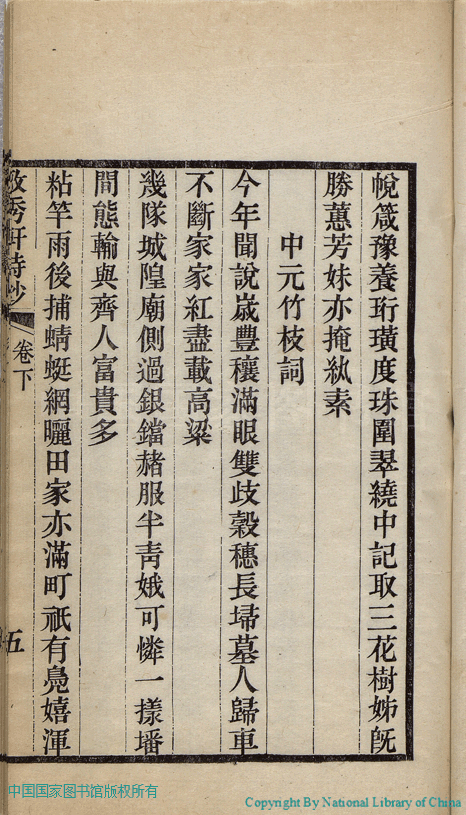 帨箴豫養珩璜度珠圍翠繞中記取三花樹姊旣
勝蕙芳妹亦掩紈素
中元竹枝詞
今年聞說嵗豐穰滿眼雙歧榖穗長埽墓人歸車
不斷家家紅盡載高粱
幾隊城隍廟側過銀鐺赭服半靑娥可憐一㨾墦
間態輸與齊人富貴多
粘竿雨後捕蜻蜓網曬田家亦滿町祇有鳧嬉渾
秀軒詩鈔
卷下
五
中国国家图书馆版权所有
Copyright By National Library of China